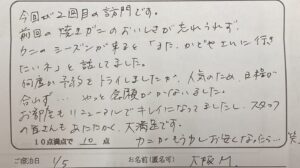 今回が2回目の訪問です。
前回の焼きガニのおいしさが忘れられず、
カニのシーズンが来ると「また、かどやさんに行き
たいネ」と話してました。
何度か予約をトライしましたが、人気のため、日程が
合わず… やっと念願がかないました。
お部屋もリニューアルでキレイになってましたし、スタッフ
の皆さんもあたたかく、大満足です。
カニがもう少しお安くなったら… 笑
10点満点で 10 点
ご宿泊日 1/5 お名前(匿名可) 大阪 M.